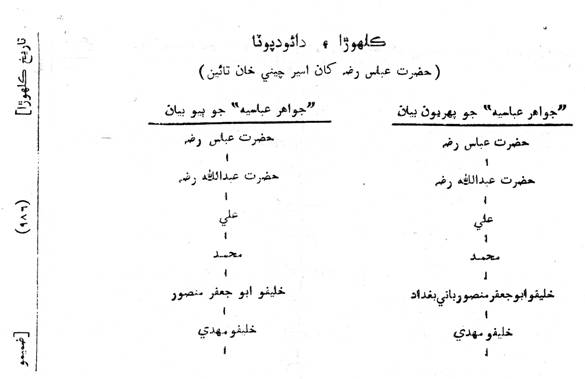 ڪلهوڙا ۽ دائودپوٽا
(حضرت عباس رضه کان امير چيني خان تائين)
"جواهر عباسيه" جو پهريون بيان
حضرت عباس رضه
حضرت عبدالله رضه
علي
محمد
خليفو ابو جعفر منصور باني بغداد
خليفو مهدي
"جواهر عباسيه" جو ٻيو بيان
حضرت عباس رضه
حضرت عبدالله رضه
علي
محمد
خليفو ابو جعفر منصور
خليفو مهدي
تاريخ ڪلهوڙا]
(۹۸۶)
[ضميمو